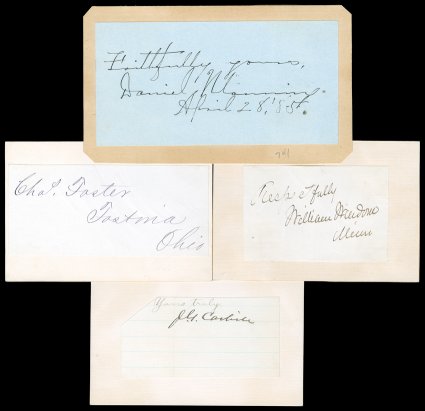 Faithfully yours,
Daniel Manning.
April 28, '85.
791
Chas. Foster
Fostoria
Ohio
Respectfully
William Windom
Minn
Yours truly
J. G. Carlisle